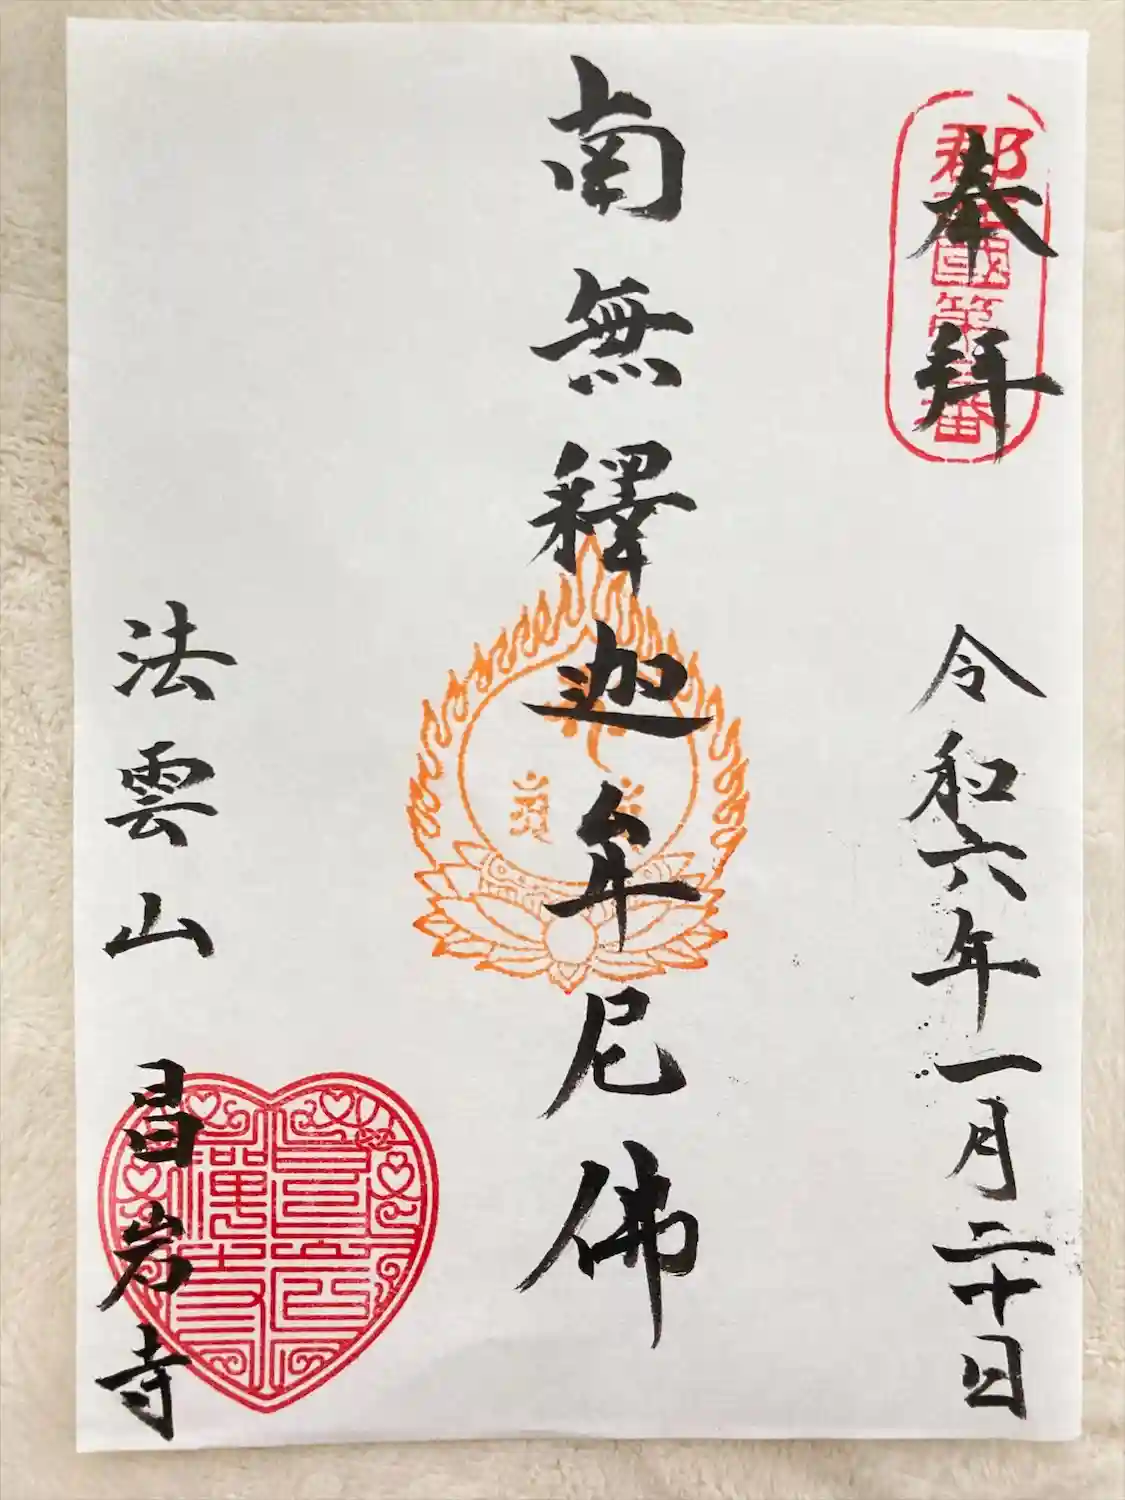 奉拜
令和六年一月二十日
南無釋迦牟尼佛
法雲山 昌岩寺